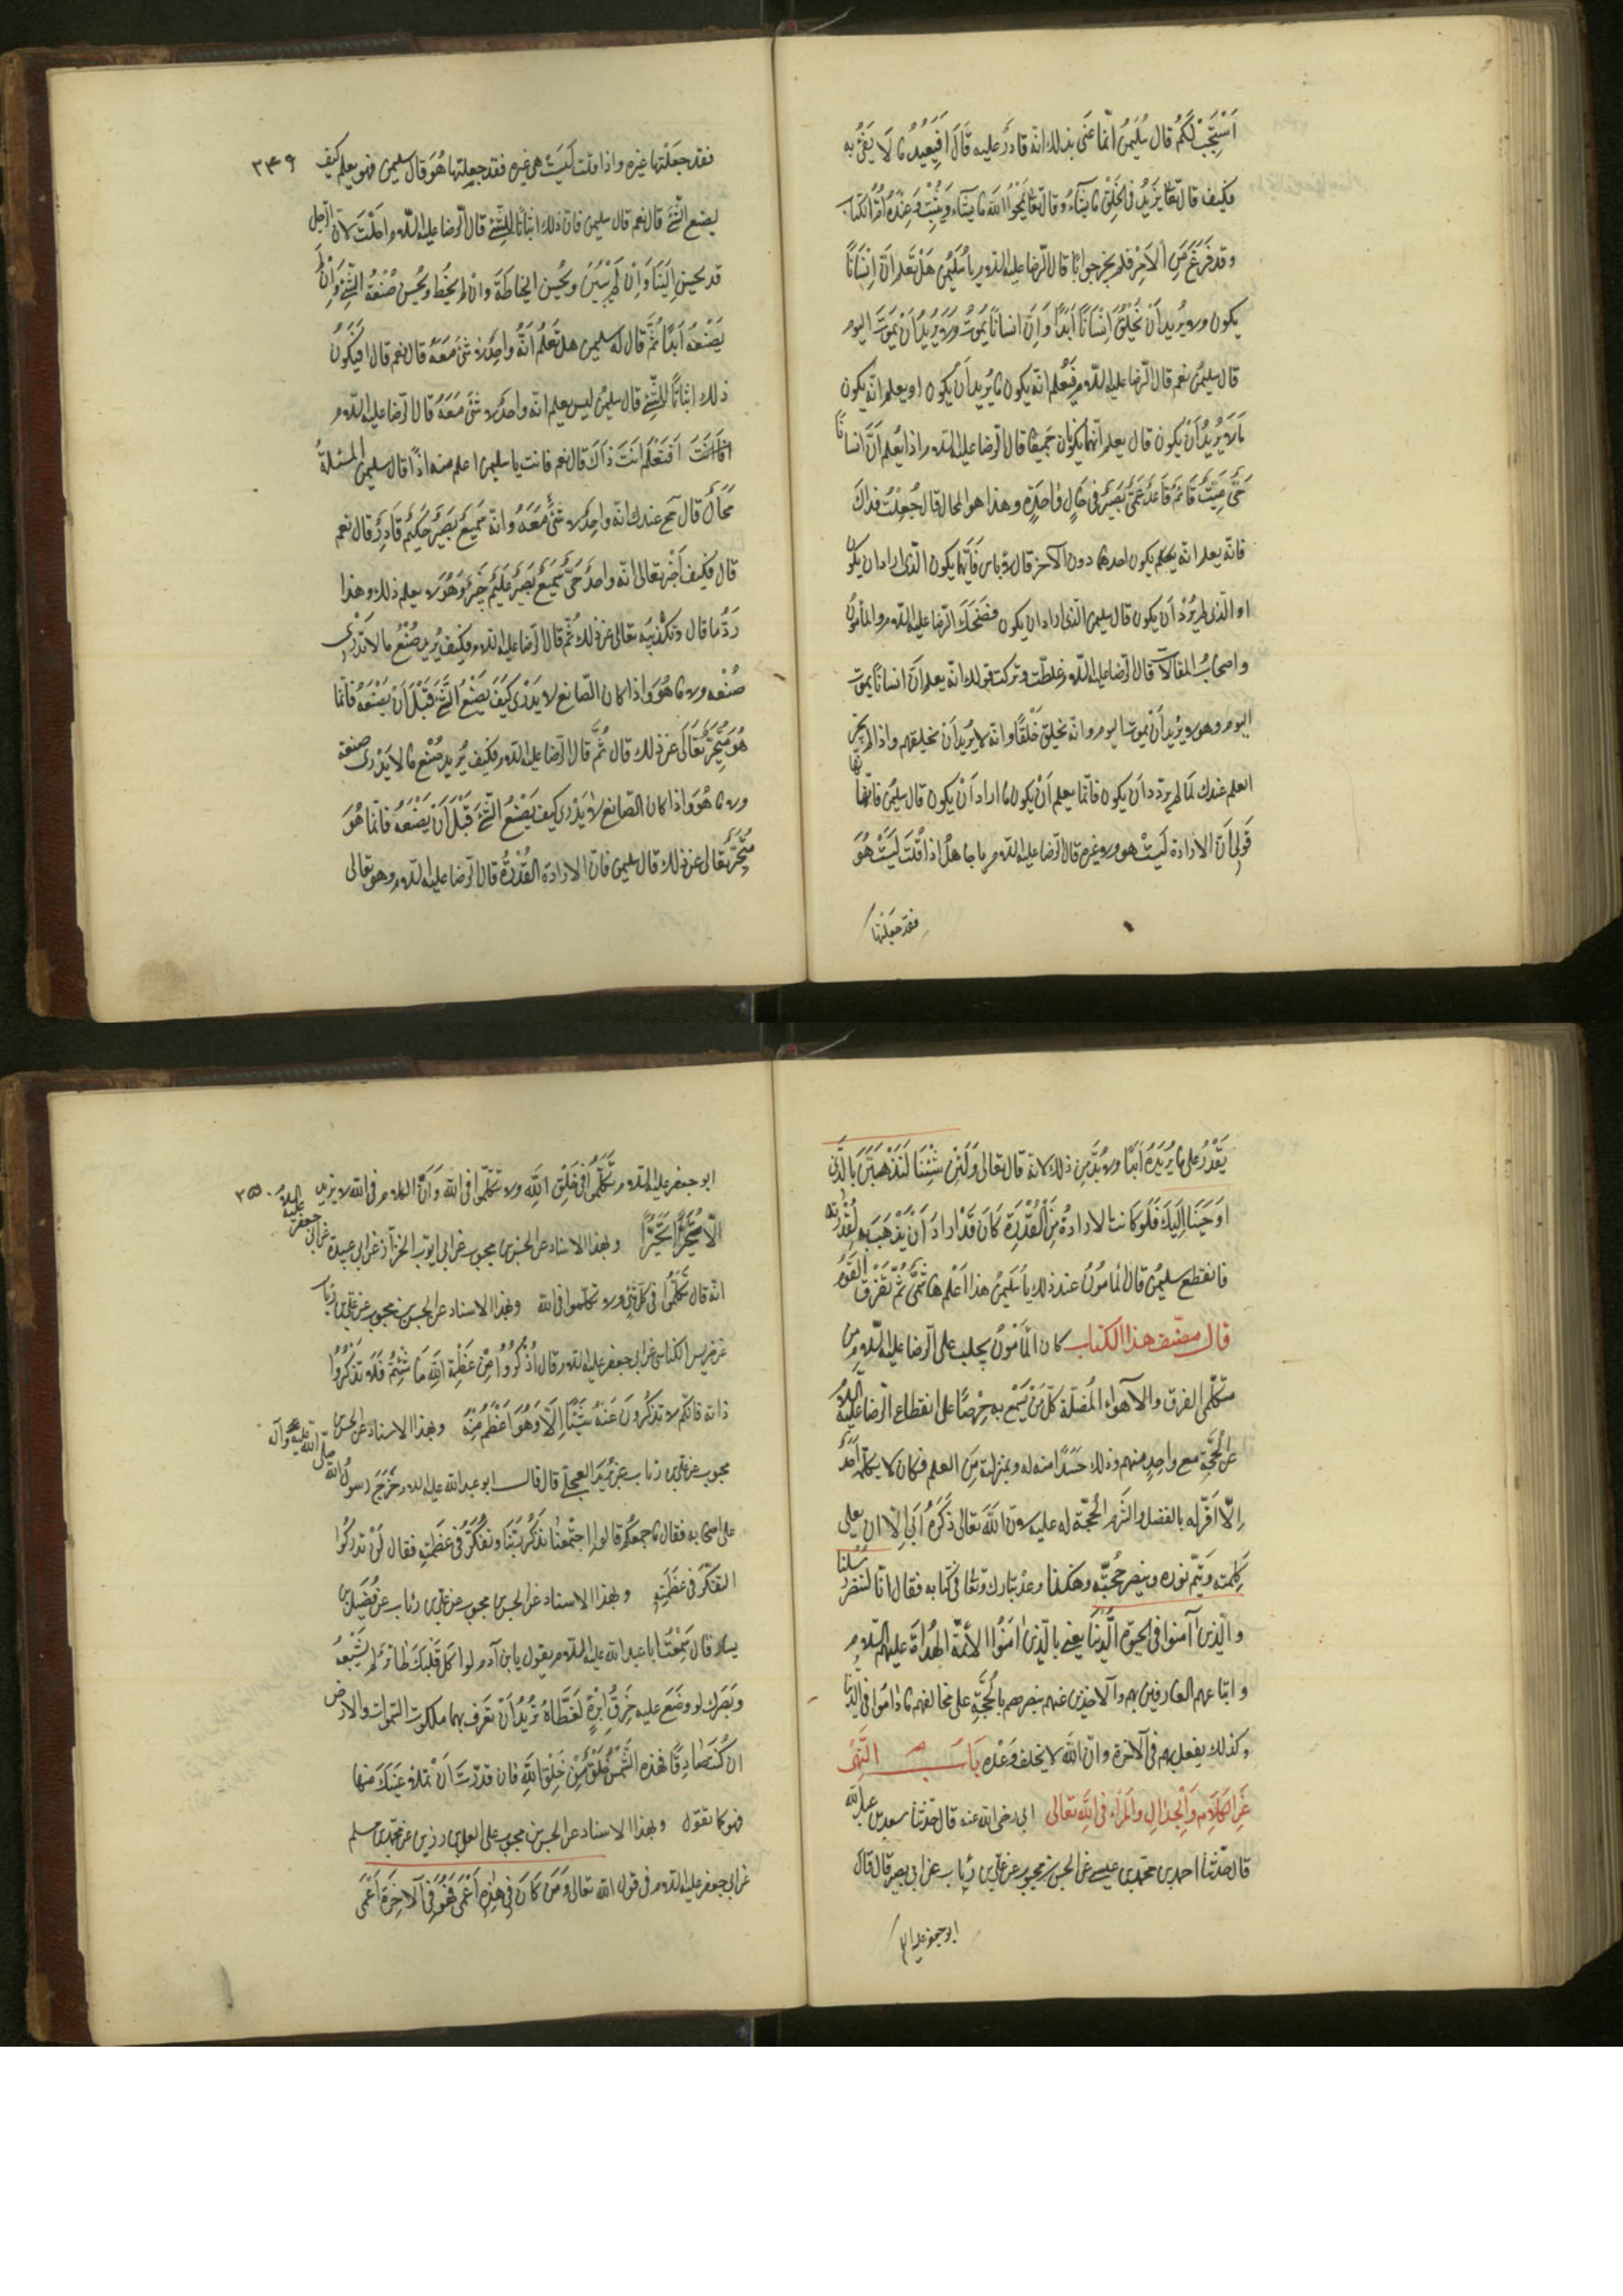 اَسْتَجِبْ لَكُمْ قال سُلَيمنُ انّما عَنَى بذلك انّه قادرٌ عليه قَالَ اَفَيَعِدُ ما لَا يَفِىْ بِه
فكيف قال تعا يَزِيدُ فى الخَلْقِ ما يَشآءُ وقال تعا يَمْحُوا اللهُ ما يَشآءُ وَيُثْبِتُ وَعِنْدَهُ اُمُّ الكتاب
وقد فَرَغَ مِنَ الاَمِرْ فلم يحِر جوابًا قال الرّضا عليه السّلام يا سُلَيْمنُ هَلْ تَعْلَم اَنَّ اِنْسَانًا
يكون ولا يُريدُ اَنْ يَخْلُقَ اِنْسَانًا اَبَدًا وَاَنّ انسانًا يَموُتُ وَلَا يُرِيدُ اَنْ يَموُتَ اليوم
قال سليمنُ نعم قال الرّضا عليه السّلام فَيَعْلم انّه يكون ما يُرِيدُ اَنْ يكون او يعلم انّه يكون
مَا لَا يُرِيدُ اَنْ يكون قال يعلم اَنّهما يَكونَانِ جَميعًا قال الرّضا عليه السّلام اذا يَعْلم اَنّ انسانًا
حَىٌّ مَيِّتٌ قَائمٌ قَاعدٌ اَعمَى بَصيرٌ فى حَالٍ واحِدَةٍ وهذا هو المحال قال جُعِلْتُ فداكَ
فانّه يعلم انّه يكون احدهما دون الآخر قال لا باس فَاَيّهما يكون الّذى اراد ان يكون
او الّذى لم يُرِدْ اَنْ يكون قال سليمن الّذى اراد ان يكون فضَحِكَ الرّضا عليه السّلام والمأمونُ
واصحابُ المقالات قال الرّضا عليه السّلام غلطتَ وتركت قولك انّه يعلم اَنَّ انسانًا يموت
اليوم وهو لا يُرِيدُ اَنْ يموتَ اليوم وانّه يخلق خَلْقًا وانّه لا يُرِيدُ اَنْ يخلقهم واذا لم يجز
العلم عندكم بما لم يرِد اَنْ يكون فانّما يعلم اَنْ يكون ما اراد اَنْ يكون قال سليمنُ فانّما
قَولِى اَنّ الارادة لَيْسَتْ هو ولا غيره قال الرّضا عليه السّلام يا جاهلُ اذا قُلْتَ لَيْسَتْ هُوَ
فقد جعلتها
٣٤٩
فقد جَعَلْتَها غيره واذا قلت لَيْسَتْ هى غيره فقد جعلتها هُوَ قال سليمن فهو يعلم كيف
يصنع الشّئَ قال نعم قال سليمن فانّ ذلك اثباتًا للشّئِ قال الرّضا عليه السّلام احَلْتَ لانّ الرّجل
قد يحسِن البِنَاء وَاِنْ لم يَبْنِ ويُحْسِن الخِيَاطَةَ وان لم يخِط ويُحْسن صُنْعَة الشّئِ وَاِنْ لم
يَصْنَعْه اَبَدًا ثُمَّ قال له سليمن هل تَعْلَم اَنّهُ واحِدٌ لا شئَ مَعَهُ قال نعم قال افيكُونُ
ذلك اثباتًا للشّئِ قال سليمنُ ليس يعلم انّه واحدٌ لا شئَ مَعَهُ قال الرّضا عليه السّلام
اَفَتَعْلَم اَنْتَ ذَاكَ قال نعم قال فانت يا سليمن اعلم منه اذًا قال سليمن المسئلةُ
مُحَالٌ قال محال عندك انّه واحِدٌ لا شئَ مَعَهُ وانّه سَمِيعٌ بَصِيرٌ حَكِيمٌ قَادِرٌ قال نعم
قال فكيف اَخْبَر تعالى انّه واحدٌ حَىٌّ سَمِيعٌ بَصِيرٌ عَلِيمٌ خَبِيرٌ وَهُوَ لا يعلم ذلك وهذا
رَدُّ ما قال وتكذيبه تعالى عن ذلك ثُمّ قال الرّضا عليه السّلام فكيف يُرِيد صُنْعَ ما لا يَدْرِى
صُنْعه ولا ما هُوَ واذا كان الصّانع لا يَدْرِى كَيْفَ يَصْنَع الشّئَ قَبْلَ اَنْ يَصْنَعَهُ فانّما
هُوَ مُتَحَيِّرٌ تَعَالَى عن ذلك قال ثُمَّ قال الرّضا عليه السّلام فكيف يُرِيد صُنْعَ ما لا يَدْرِى صنعه
ولا ما هُوَ واذا كان الصّانع لا يَدْرِى كيف يَصْنَعُ الشّئَ قَبْلَ اَنْ يَصْنَعَهُ فانّما هُوَ
مُتَحَيِّرٌ تعالى عن ذلك قال سليمن فانّ الارادة القُدْرَةُ قال الرّضا عليه السّلام وهو تعالى
يَقْدِرُ على ما لا يُرِيدُهُ اَبَدًا ولا بُدَّ مِن ذلك لانّه قال تعالى وَلَئِنْ شِئْنَا لَنَذْهَبَنَّ بالّذى
اَوْحَيْنَا اِلَيكَ فَلَو كانت الارادةُ هِىَ الْقُدْرَةَ كَانَ قَدْ اراد اَنْ يَذْهَبَ به لِقُدْرَتِه
فانقطع سليمنُ قال المأمونُ عند ذلك يا سُلَيمنُ هذا اَعْلَم هاشِمِىٍّ ثُمَّ تَفَرّقَ القَوْمُ
قال مصنّف هذا الكتاب كان المأمونُ يجلب على الرّضا عليه السّلام من
متكلّمى الفرق والاهواء المُضِلّة كلّ مَنْ يَسْمَع به حِرْصًا على انقطاع الرّضا عليه السّلام
عن الحُجّةِ مع واحِدٍ منهم وذلك حَسَدًا منه له ولمنزلته مِنَ العلم فكان لا يكلّمه اَحَدٌ
اِلّا اَقرّ له بالفضل والتزم الحُجّة له عليه لانّ اللهَ تعالى ذِكْرُهُ اَبَى اِلّا ان يعلى
كَلِمَته وَيتمّ نوره وينصر حُجّته وهكذا وعد تبارك وتعالى فى كتابه فقال انّا لننصر رُسُلنا
والّذين آمنوا فى الحيوة الدُّنْيَا يعنى بالّذين اٰمَنُوا الائمّة الهُدَاة عليهم السّلام
واتباعهم العارفين بهم والاخذين عنهم ينصرهم بالحُجّةِ على مخالفيهم ما دَامُوا فى الدّنيا
وكذلك يفعل بهم فى الآخرة وانّ الله لا يخلف وَعْده بَابُ النَّهْىِ
عَنِ الكَلَامِ وَالْجِدَالِ وَالْمِرَاءِ فِى اللهِ تعالى ابى رضى الله عنه قال حَدّثنا سعد بن عبد الله
قال حَدّثنا احمد بن محمّد بن عيسى عن الحسن بن محبوب عن علىّ بن رئاب عن ابى بصير قال قال
ابو جعفر عليه ال
٣٥٠
ابو جعفر عليه السّلام تَكَلّمُوا فى خَلْقِ اللهِ ولا تكَلّمُوا فى الله وَاَنّ الكلام فى الله لا يزيد
اِلّا تَحَيُّرًا وبهذا الاسناد عن الحسن بن محبوب عن ابى ايّوب الخزّاز عن ابى عبيدة عن ابى جعفر عليه السّلام
انّه قال تكَلّمُوا فى كُلّ شئٍ ولا تكلّموا فى الله وبهذا الاسناد عن الحسن بن محبوب عن علىّ بن رئاب
عن ضريس الكناسى عن ابى جعفر عليه السّلام قال اُذْكُرُوا مِنْ عَظَمَةِ اللهِ مَا شِئْتُمْ فَلَا تَذْكُرُوا
ذاته فانّكم لا تذكرُونَ مِنْهُ شَيْئًا اِلّا وَهُوَ اَعْظَم مِنْه وبهذا الاسناد عن الحسن بن
محبوب عن علىّ بن رئاب عن بُرَيْدٍ العِجلىّ قال قال ابو عبد الله عليه السلام خَرَجَ رسول الله صلّى الله عليه وآله
على اصحابه فقال ما جمعكم قالوا اجْتَمَعْنا نذكُر رَبّنَا ونتفَكّرُ فى عَظَمتِهِ فقال لَنْ تدركوا
التّفكّر فى عَظَمَتِهِ وبهذا الاسناد عن الحسن بن محبوب عن علىّ بن رئاب عن فُضَيل بن
يسار قال سَمِعْتُ ابا عبد الله عليه السّلام يقول يابن آدم لو اكل قَلْبَكَ طائرٌ لم يُشْبِعْهُ
وبَصَرك لو وضع عليه خَرق اِبْرَةٍ لَغَطَّاهُ تُرِيدُ اَنْ تعرف بهما ملكوت السّموات والارض
ان كُنْتَ صَادِقًا فهذه الشّمْسُ خَلْقٌ مِنْ خَلْقِ اللهِ فان قدرْتَ اَنْ تملأ عَيْنَكَ منها
فهو كما تقول وبهذا الاسناد عن الحسن بن محبوب عن العلا بن رزين عن محمّد بن مسلم
عن ابى جعفر عليه السّلام فى قول الله تعالى وَمَنْ كَانَ فِى هٰذِهِ اَعْمَى فَهُوَ فِى الآخِرَةِ اَعْمَى